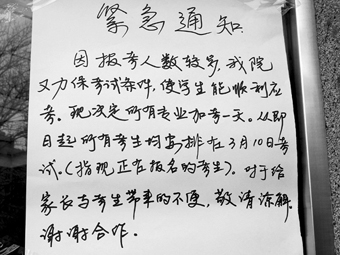 紧急通知
因报考人数较多,我院
又力保考试条件,使学生能顺利应
考。现决定所有专业加考一天。从即
日起所有考生均安排在3月10日考
试。(指现正在报名的考生)。对于给
家长与考生带来的不便,敬请谅解。
谢谢合作。